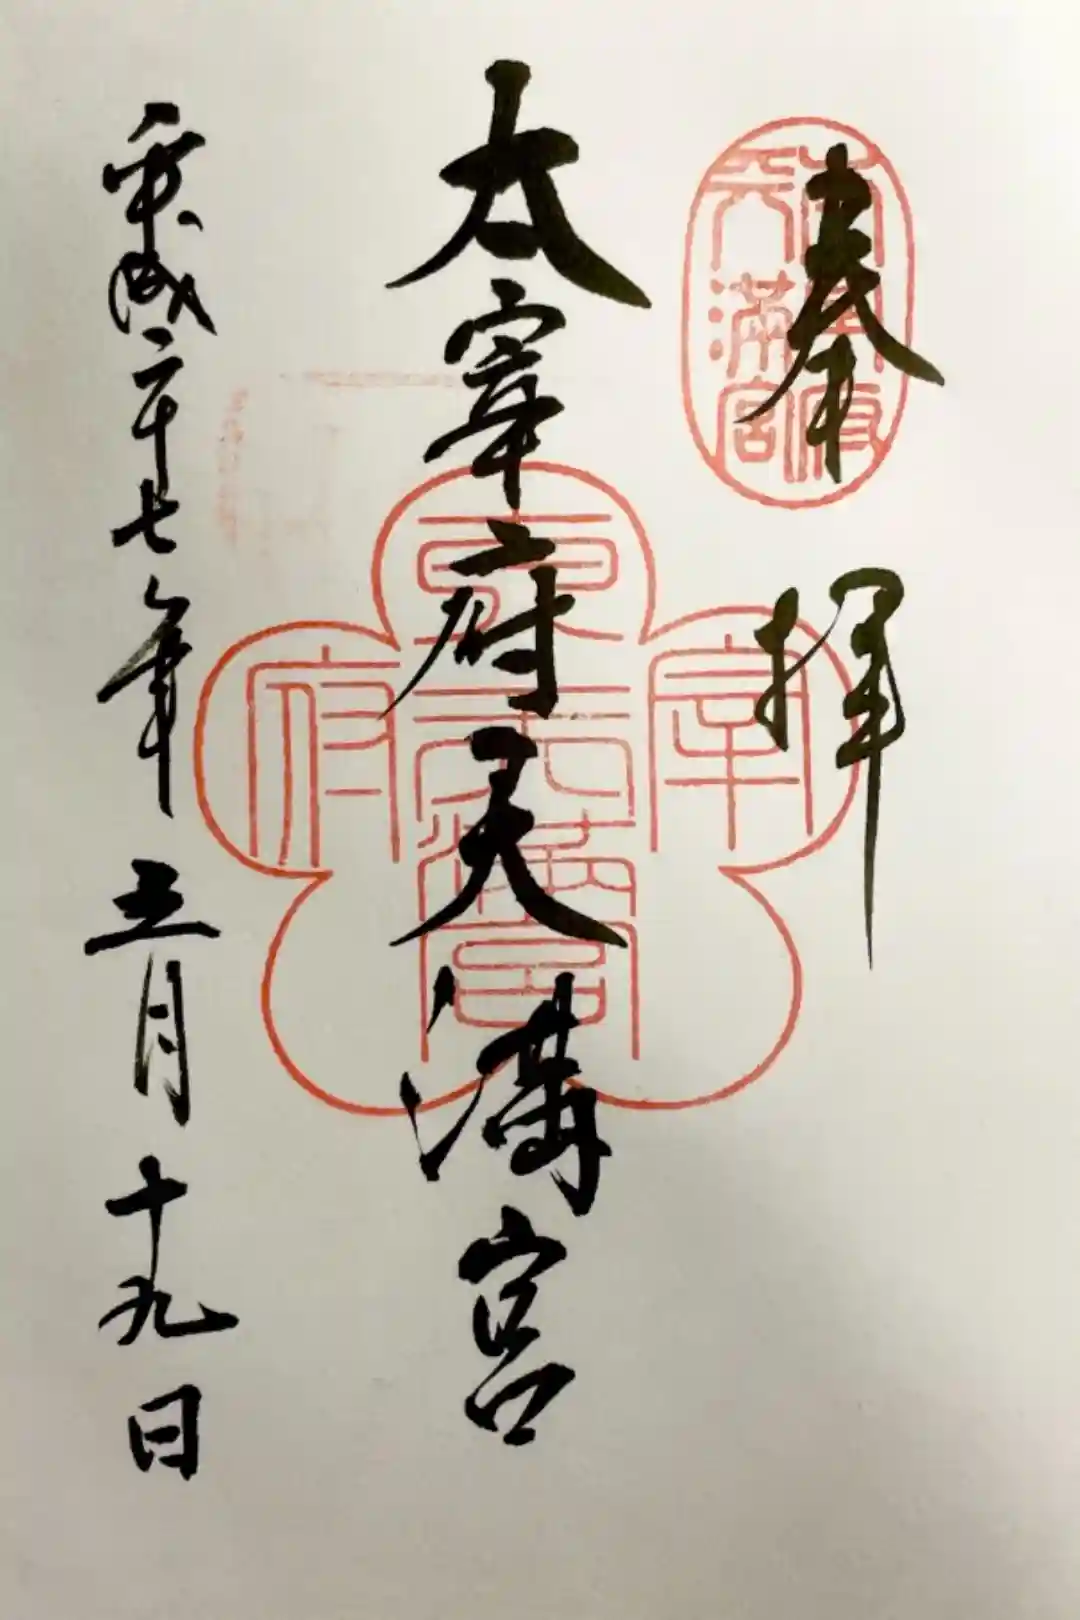 奉拝
太宰府天満宮
平成二十七年五月十九日
太宰府
天満宮